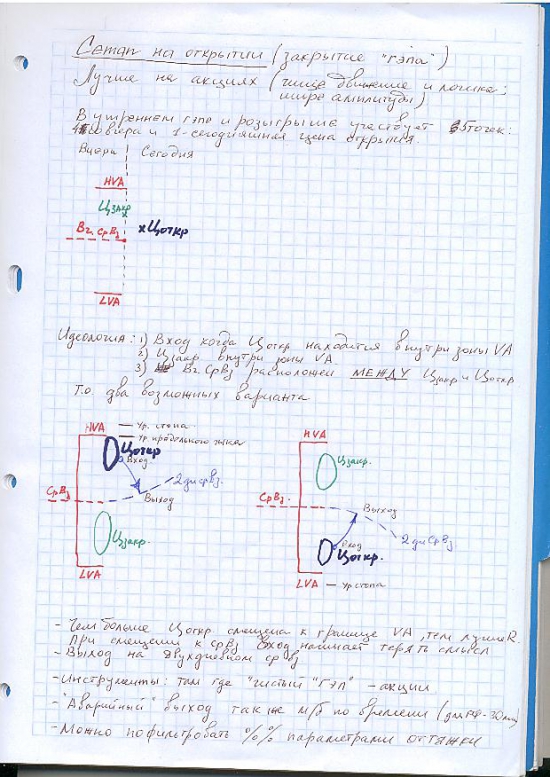 Сетап на открытии (закрытие "гэпа")
Лучше на акциях (чище движение и логика;
шире амплитуды)
В утреннем гэпе и розыгрыше участвует 5 точек:
4 вчера и 1-сегодняшняя цена открытия.
Вчера Сегодня
HVA
Цзакр
Вч. СрВз xЦоткр
LVA
Идеология: 1) Вход когда Цоткр находится внутри зоны VA
2) Цзакр внутри зоны VA
3) Вч. СрВз расположен МЕЖДУ Цзакр и Цоткр.
Т.о. два возможных варианта
HVA — Ур. стопа
— Ур. предельного
Цоткр
Вход
2дн срвз
СрВз
Выход
Цзакр.
LVA
HVA
Цзакр.
СрВз.
Выход
2дн СрВз
Вход
Цоткр.
LVA — Ур стопа
- Чем больше Цоткр смещена к границе VA, тем лучше R.
При смещении к СрВз Вход начинает терять смысл
- Выход на двухдневном ср вз
- Инструменты: там где "чистый" "Гэп" - акции
- "Аварийный" выход так же м/б по времени (для РФ - 30мин)
- Можно пофильтровать %% параметрами оттяжки